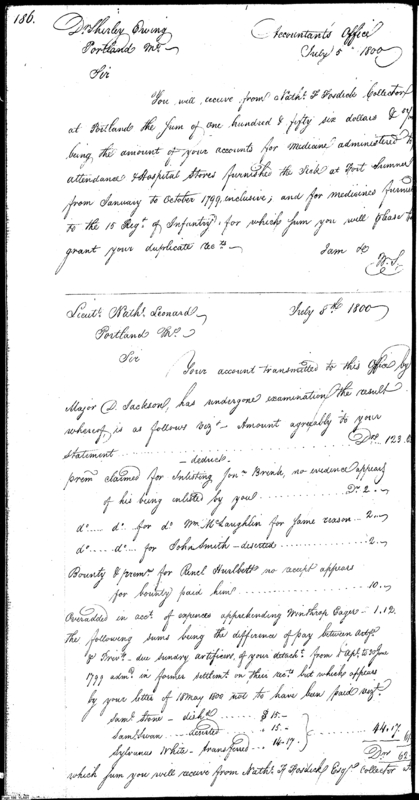 186.
Dr Shirley Erving
Accountants Office
Portland Me
July 5th 1800
Sir
You will receive from Nathl. F Fosdick Collector
at Portland the Sum of one hundred & fifty six dollars &
being the amount of your accounts for medicine administered to
attendance & Hospital Stores furnished the Sick at Fort Sumner
from January to October 1799, inclusive; and for medicines
to the 15 Regt. of Infantry, for which Sum you will please to
grant your duplicate Rects
I am &c
W. S.
Lieut. Nathl. Leonard
July 8th 1800
Portland Me.
Sir
Your account transmitted to this Office by
Major D. Jackson, has undergone examination the result
whereof is as follows Vizt - Amount agreeably to your
Statement Drs. 123.
- deduct -
prem claimed for Inlisting Jonn Break, no evidence appears
of his being enlisted by you Dr 2..
do .. do. for do Wm McLaughlin for same reason .. 2..
do .. do. for John Smith - deserted 2..
Bounty & prem. for Renel Hurlbett no receipt appears
for bounty paid him 10..
Overadded in acct. of expences apprehending Winthrop Eager - 1.12
the following sums being the difference of pay between
& - due sundry artificers, of your detacht. from 1 Apl. to 30 June
1799 admd. in former settlemt. on their rects. but which appears
by your letter of 18 May 1800 not to have been paid
Saml. Stone - disch $ 15..
Saml. - deserted " 15..
Sylvanus White - transferred 14.17
44.17
Drs 62
which sum you will receive from Nathl. F Fosdick Esqr. Collector